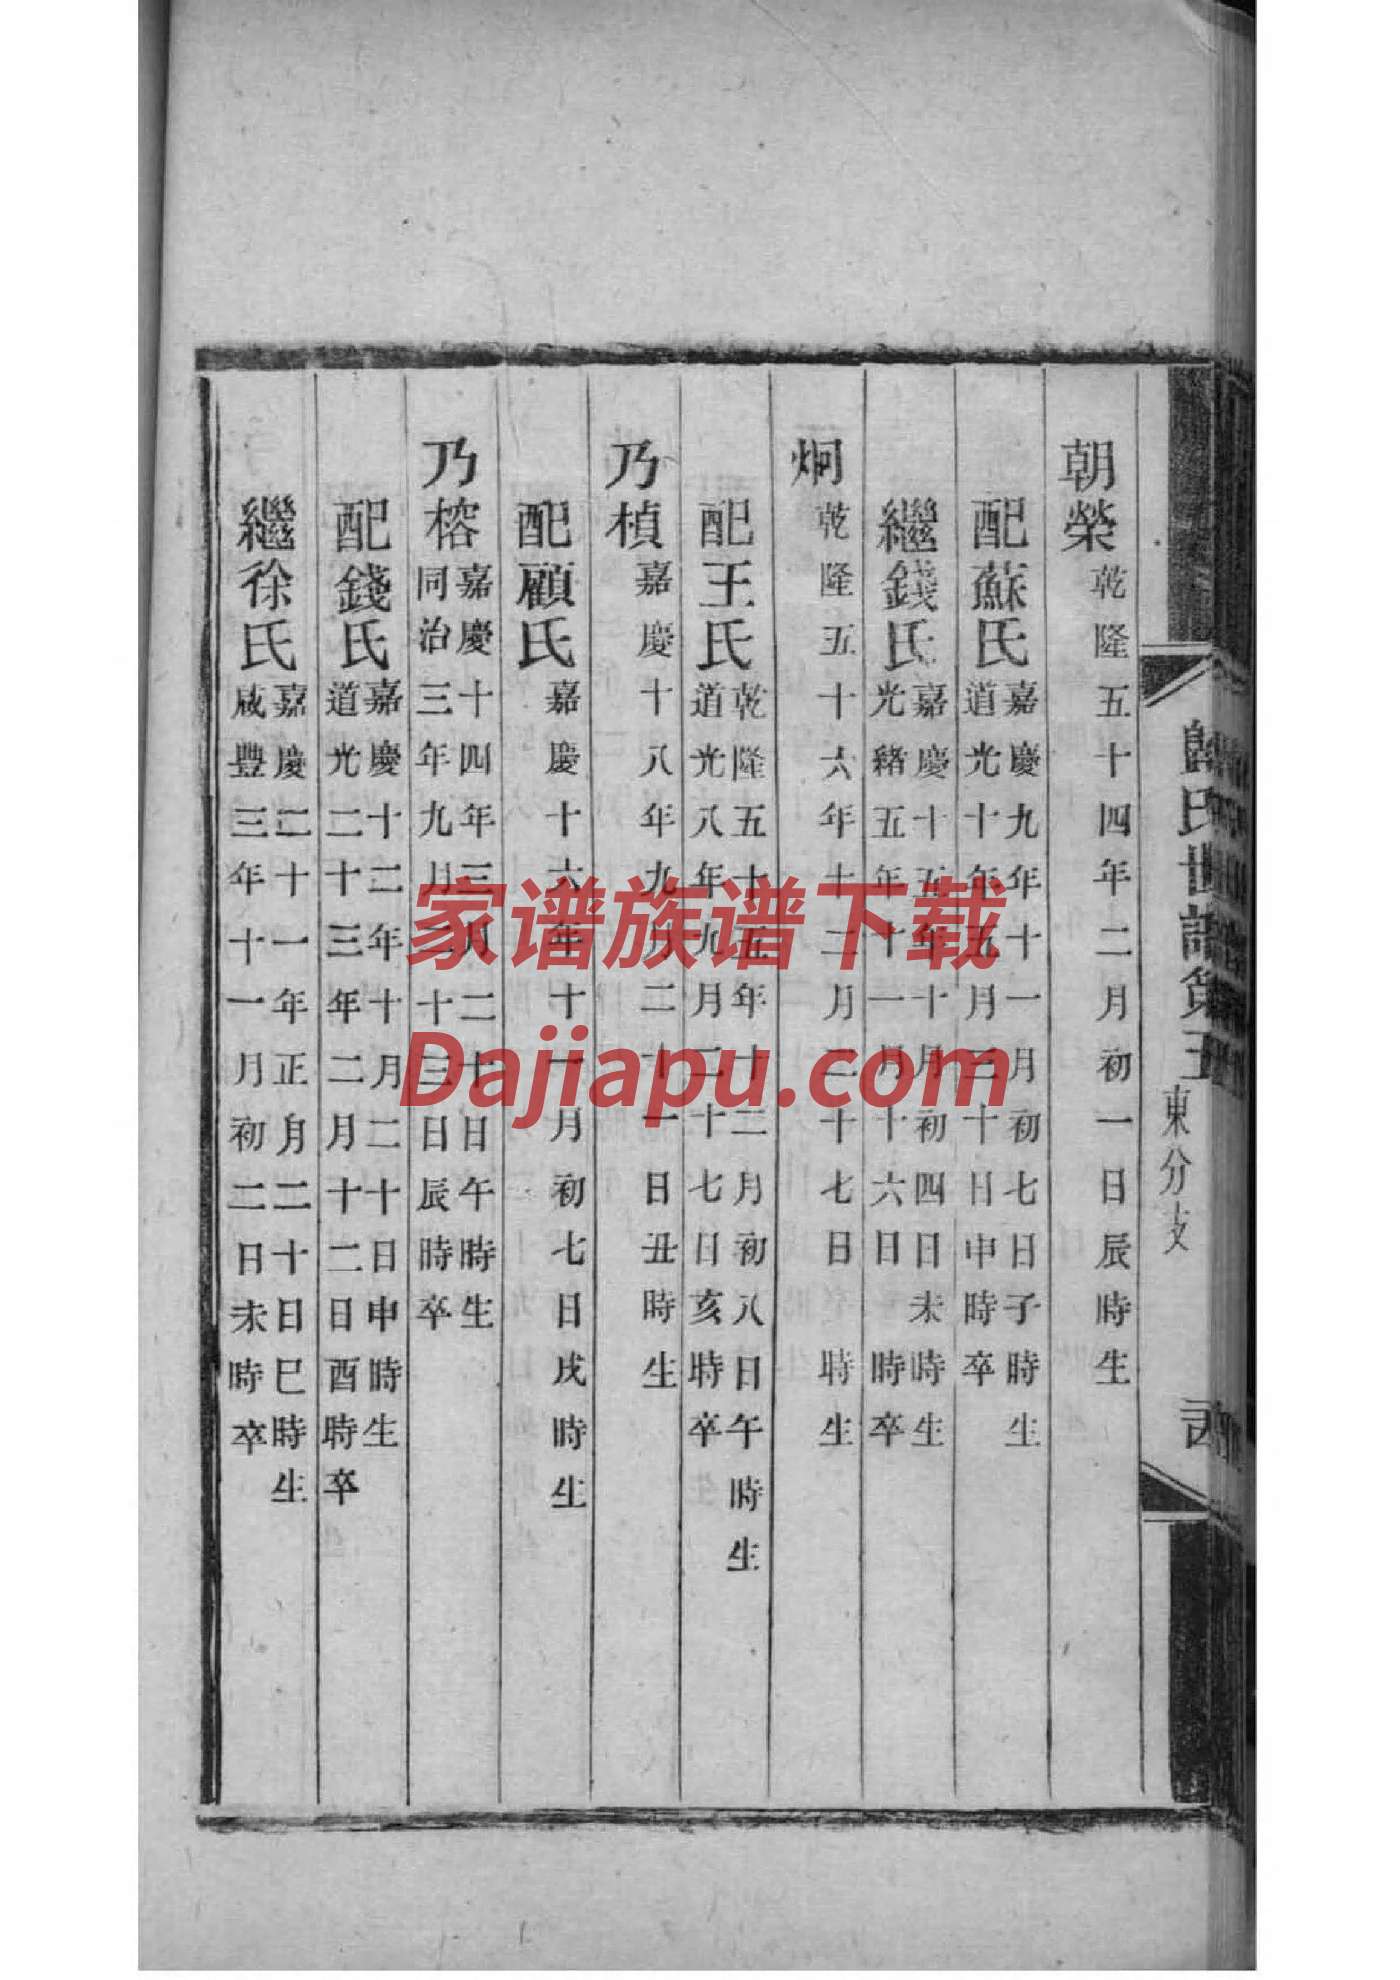 朝榮乾隆五十四年二月初一日辰時生
配蘇氏嘉慶九年十一月初七日子時生
道光十年五月三十日申時卒
繼錢氏嘉慶十五年十月初四日未時生
光緒五年十一月十六日時卒
炯乾隆五十六年十二月二十七日時生
配王氏乾隆五十五年十二月初八日午時生
道光八年九月二十七日亥時卒
乃楨嘉慶十八年九月二十一日丑時生
配顧氏嘉慶十六年十一月初七日戌時生
乃榕嘉慶十四年三月二十日午時生
同治三年九月二十三日辰時卒
配錢氏嘉慶十二年十月二十日申時生
道光二十三年二月十二日酉時卒
繼徐氏嘉慶二十一年正月二十日巳時生
咸豐三年十一月初二日未時卒
氏世譜第五
東分支
家谱族谱下载
Dajiapu.com